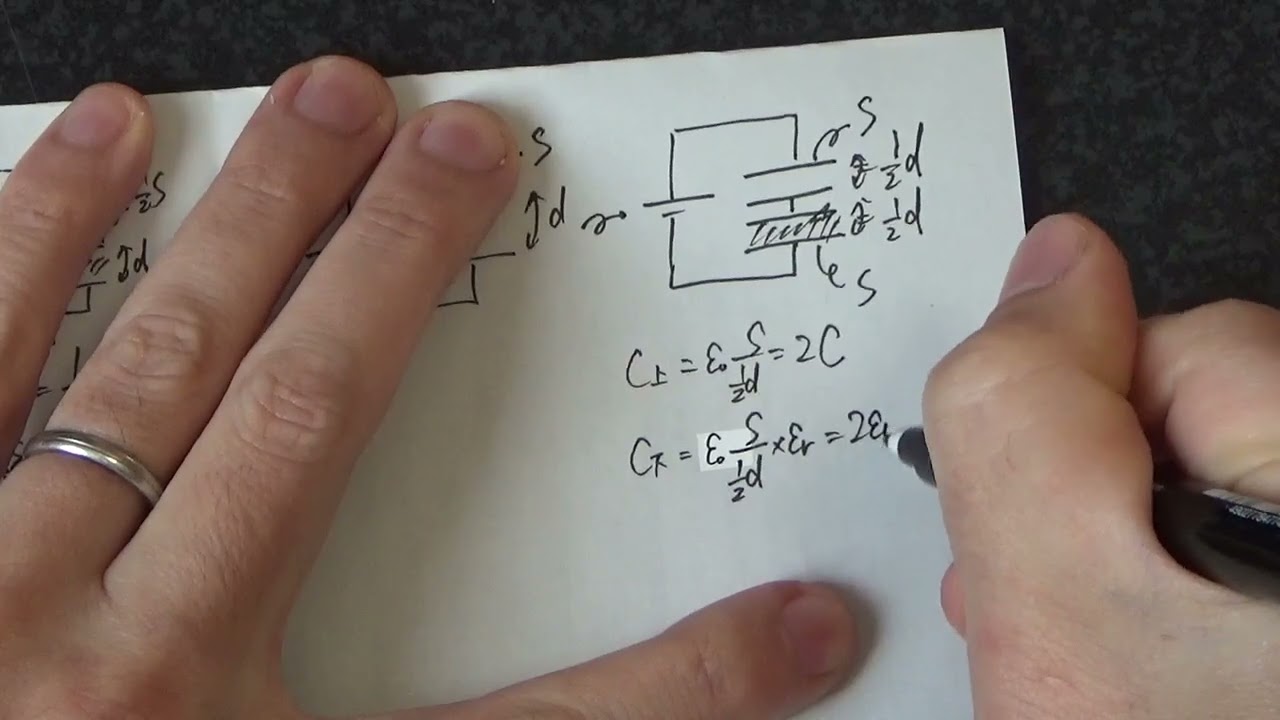 ½S
d
S
d
S
½d
½d
S
C上 = ε₀ S/(½d) = 2C
C下 = ε₀ S/(½d) × εr = 2εr